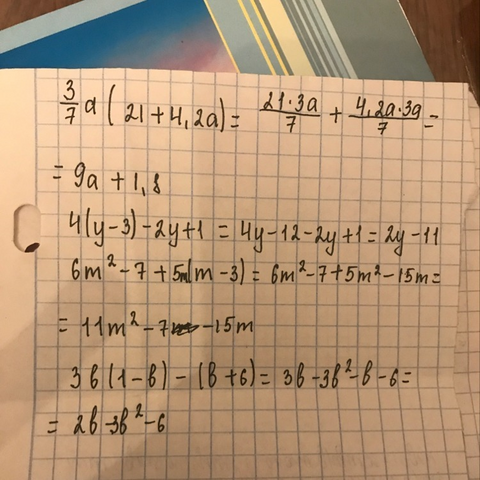 3/7 a (21+4,2a) = 21·3a/7 + 4,2a·3a/7 =
= 9a + 1,8
4(y-3)-2y+1 = 4y-12-2y+1 = 2y-11
6m²-7+5m(m-3) = 6m²-7+5m²-15m =
= 11m²-7-15m
3b(1-b)-(b+6) = 3b-3b²-b-6 =
= 2b-3b²-6